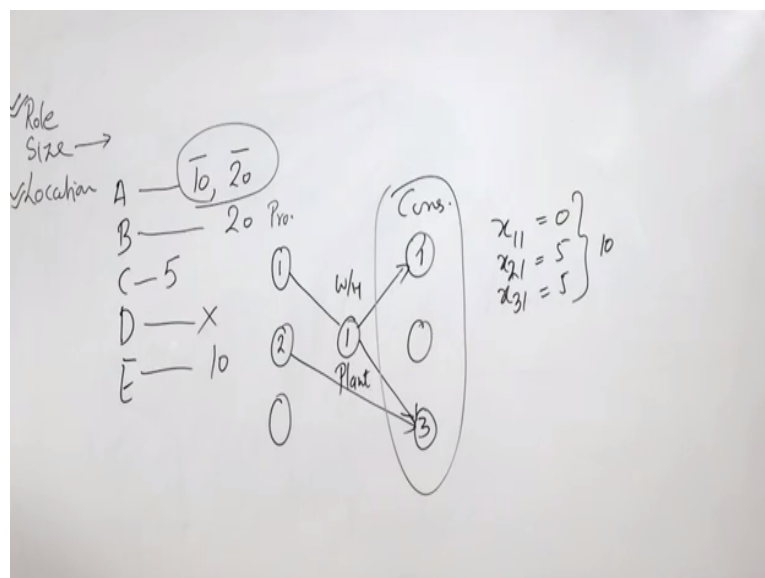 Role
Size →
Location
A — 10, 20
B — 20
C — 5
D — X
E — 10
Pro.
1
2
W/H
1
Plant
Cons.
1
3
x11 = 0
x21 = 5
x31 = 5
10